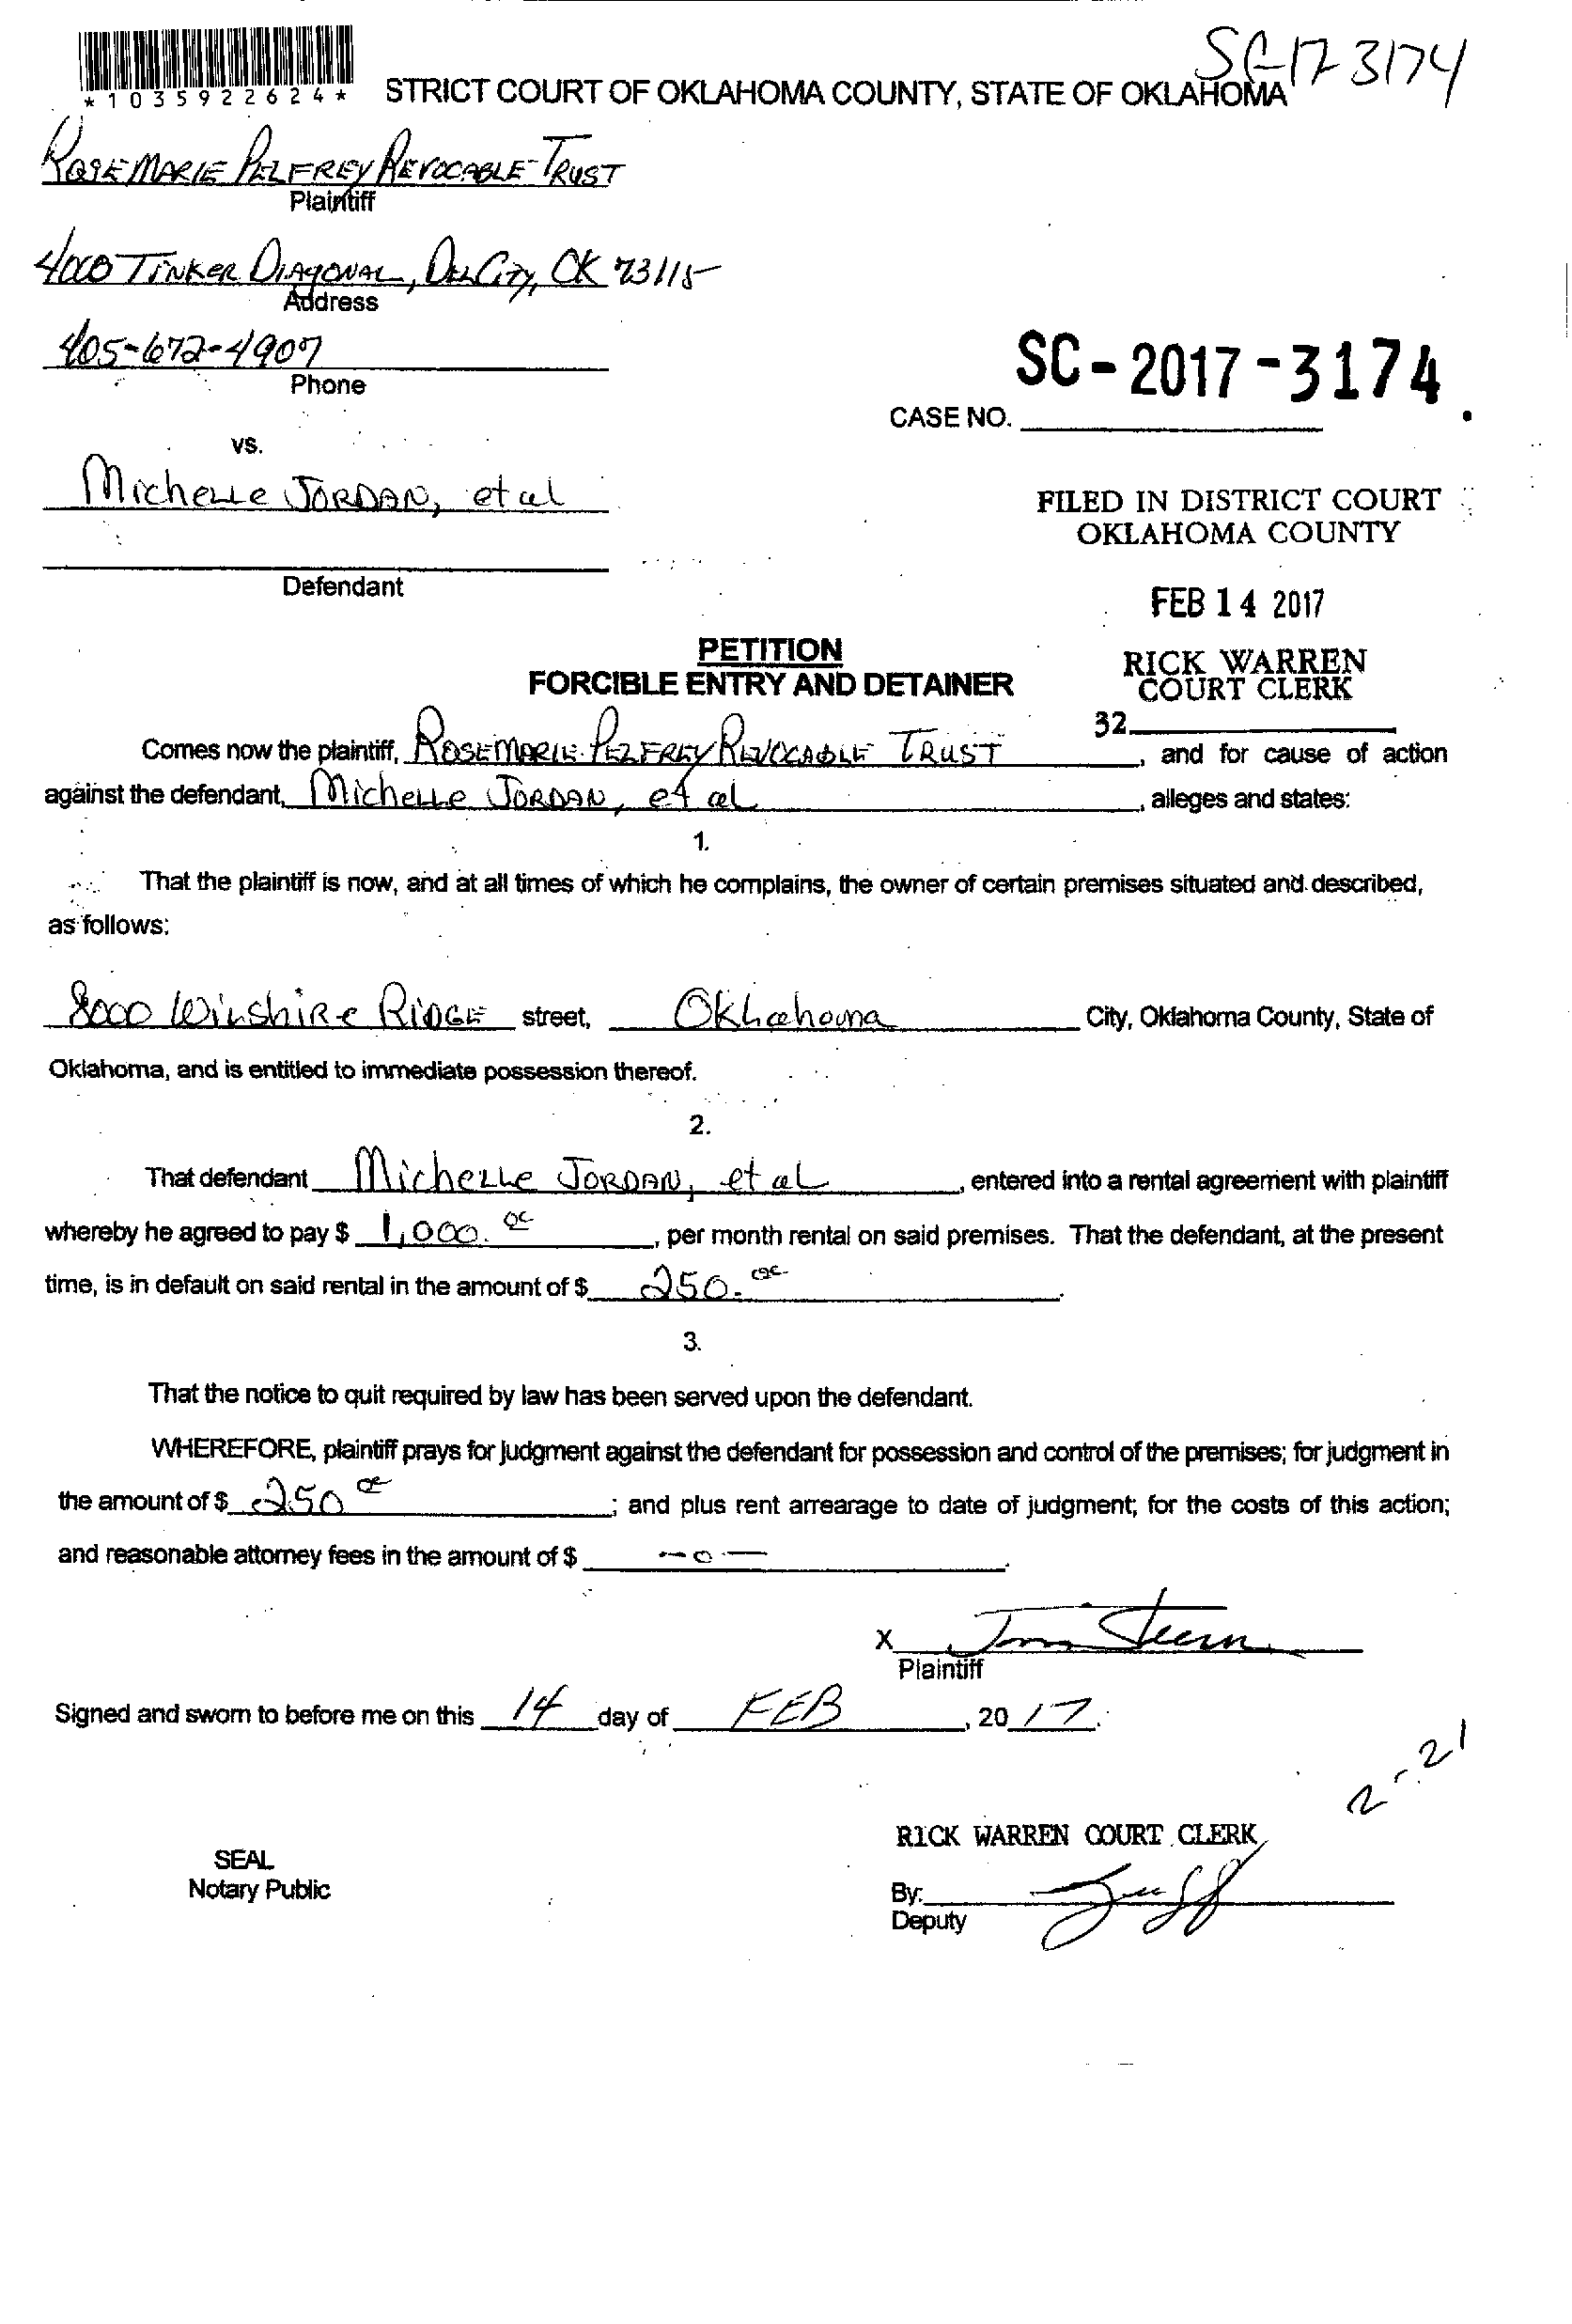 SC-17-3174
*1035922624*
STRICT COURT OF OKLAHOMA COUNTY, STATE OF OKLAHOMA
ROSEMARIE PELFREY REVOCABLE TRUST
Plaintiff
4000 TINKER DIAGONAL, DEL CITY, OK 73115
Address
405-672-4907
Phone
SC-2017-3174
CASE NO.
vs.
Michelle JORDAN, et al
FILED IN DISTRICT COURT
OKLAHOMA COUNTY
Defendant
FEB 14 2017
PETITION
FORCIBLE ENTRY AND DETAINER
RICK WARREN
COURT CLERK
32
Comes now the plaintiff, ROSEMARIE PELFREY REVOCABLE TRUST, and for cause of action
against the defendant, Michelle JORDAN, et al, alleges and states:
1.
That the plaintiff is now, and at all times of which he complains, the owner of certain premises situated and described,
as follows:
8000 Wilshire RIDGE street, Oklahoma City, Oklahoma County, State of
Oklahoma, and is entitled to immediate possession thereof.
2.
That defendant Michelle JORDAN, et al, entered into a rental agreement with plaintiff
whereby he agreed to pay $ 1,000.00, per month rental on said premises. That the defendant, at the present
time, is in default on said rental in the amount of $ 250.00.
3.
That the notice to quit required by law has been served upon the defendant.
WHEREFORE, plaintiff prays for judgment against the defendant for possession and control of the premises; for judgment in
the amount of $ 250 00; and plus rent arrearage to date of judgment; for the costs of this action;
and reasonable attorney fees in the amount of $ -0-.
X
Plaintiff
Signed and sworn to before me on this 14 day of FEB, 20 17.
2-21
RICK WARREN COURT CLERK
SEAL
Notary Public
By:
Deputy